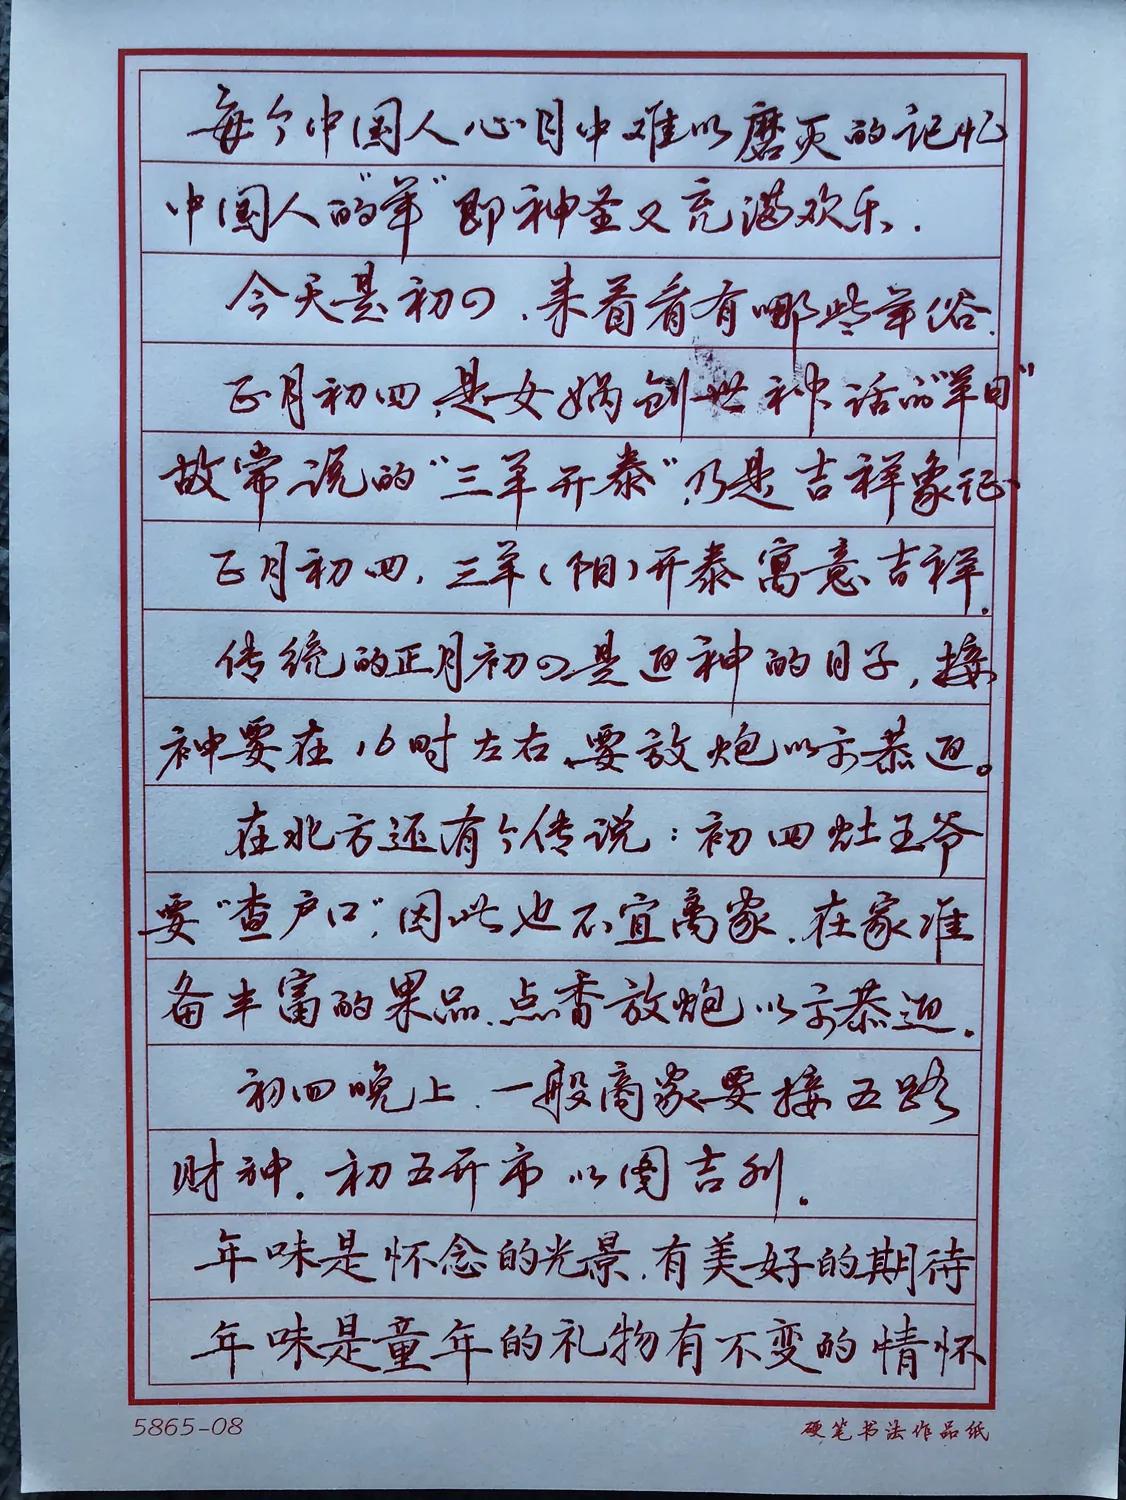 每个中国人心目中难以磨灭的记忆
中国人的“年”即神圣又充满欢乐.
今天是初四,来看看有哪些年俗.
正月初四,是女娲创世神话的“羊日”
故常说的“三羊开泰”,乃是吉祥象征
正月初四,三羊(阳)开泰寓意吉祥.
传统的正月初四是迎神的日子,接
神要在16时左右,要放炮以示恭迎。
在北方还有个传说:初四灶王爷
要“查户口”,因此也不宜离家.在家准
备丰富的果品.点香放炮以示恭迎.
初四晚上.一般商家要接五路
财神.初五开市以图吉利.
年味是怀念的光景.有美好的期待
年味是童年的礼物有不变的情怀
5865-08
硬笔书法作品纸